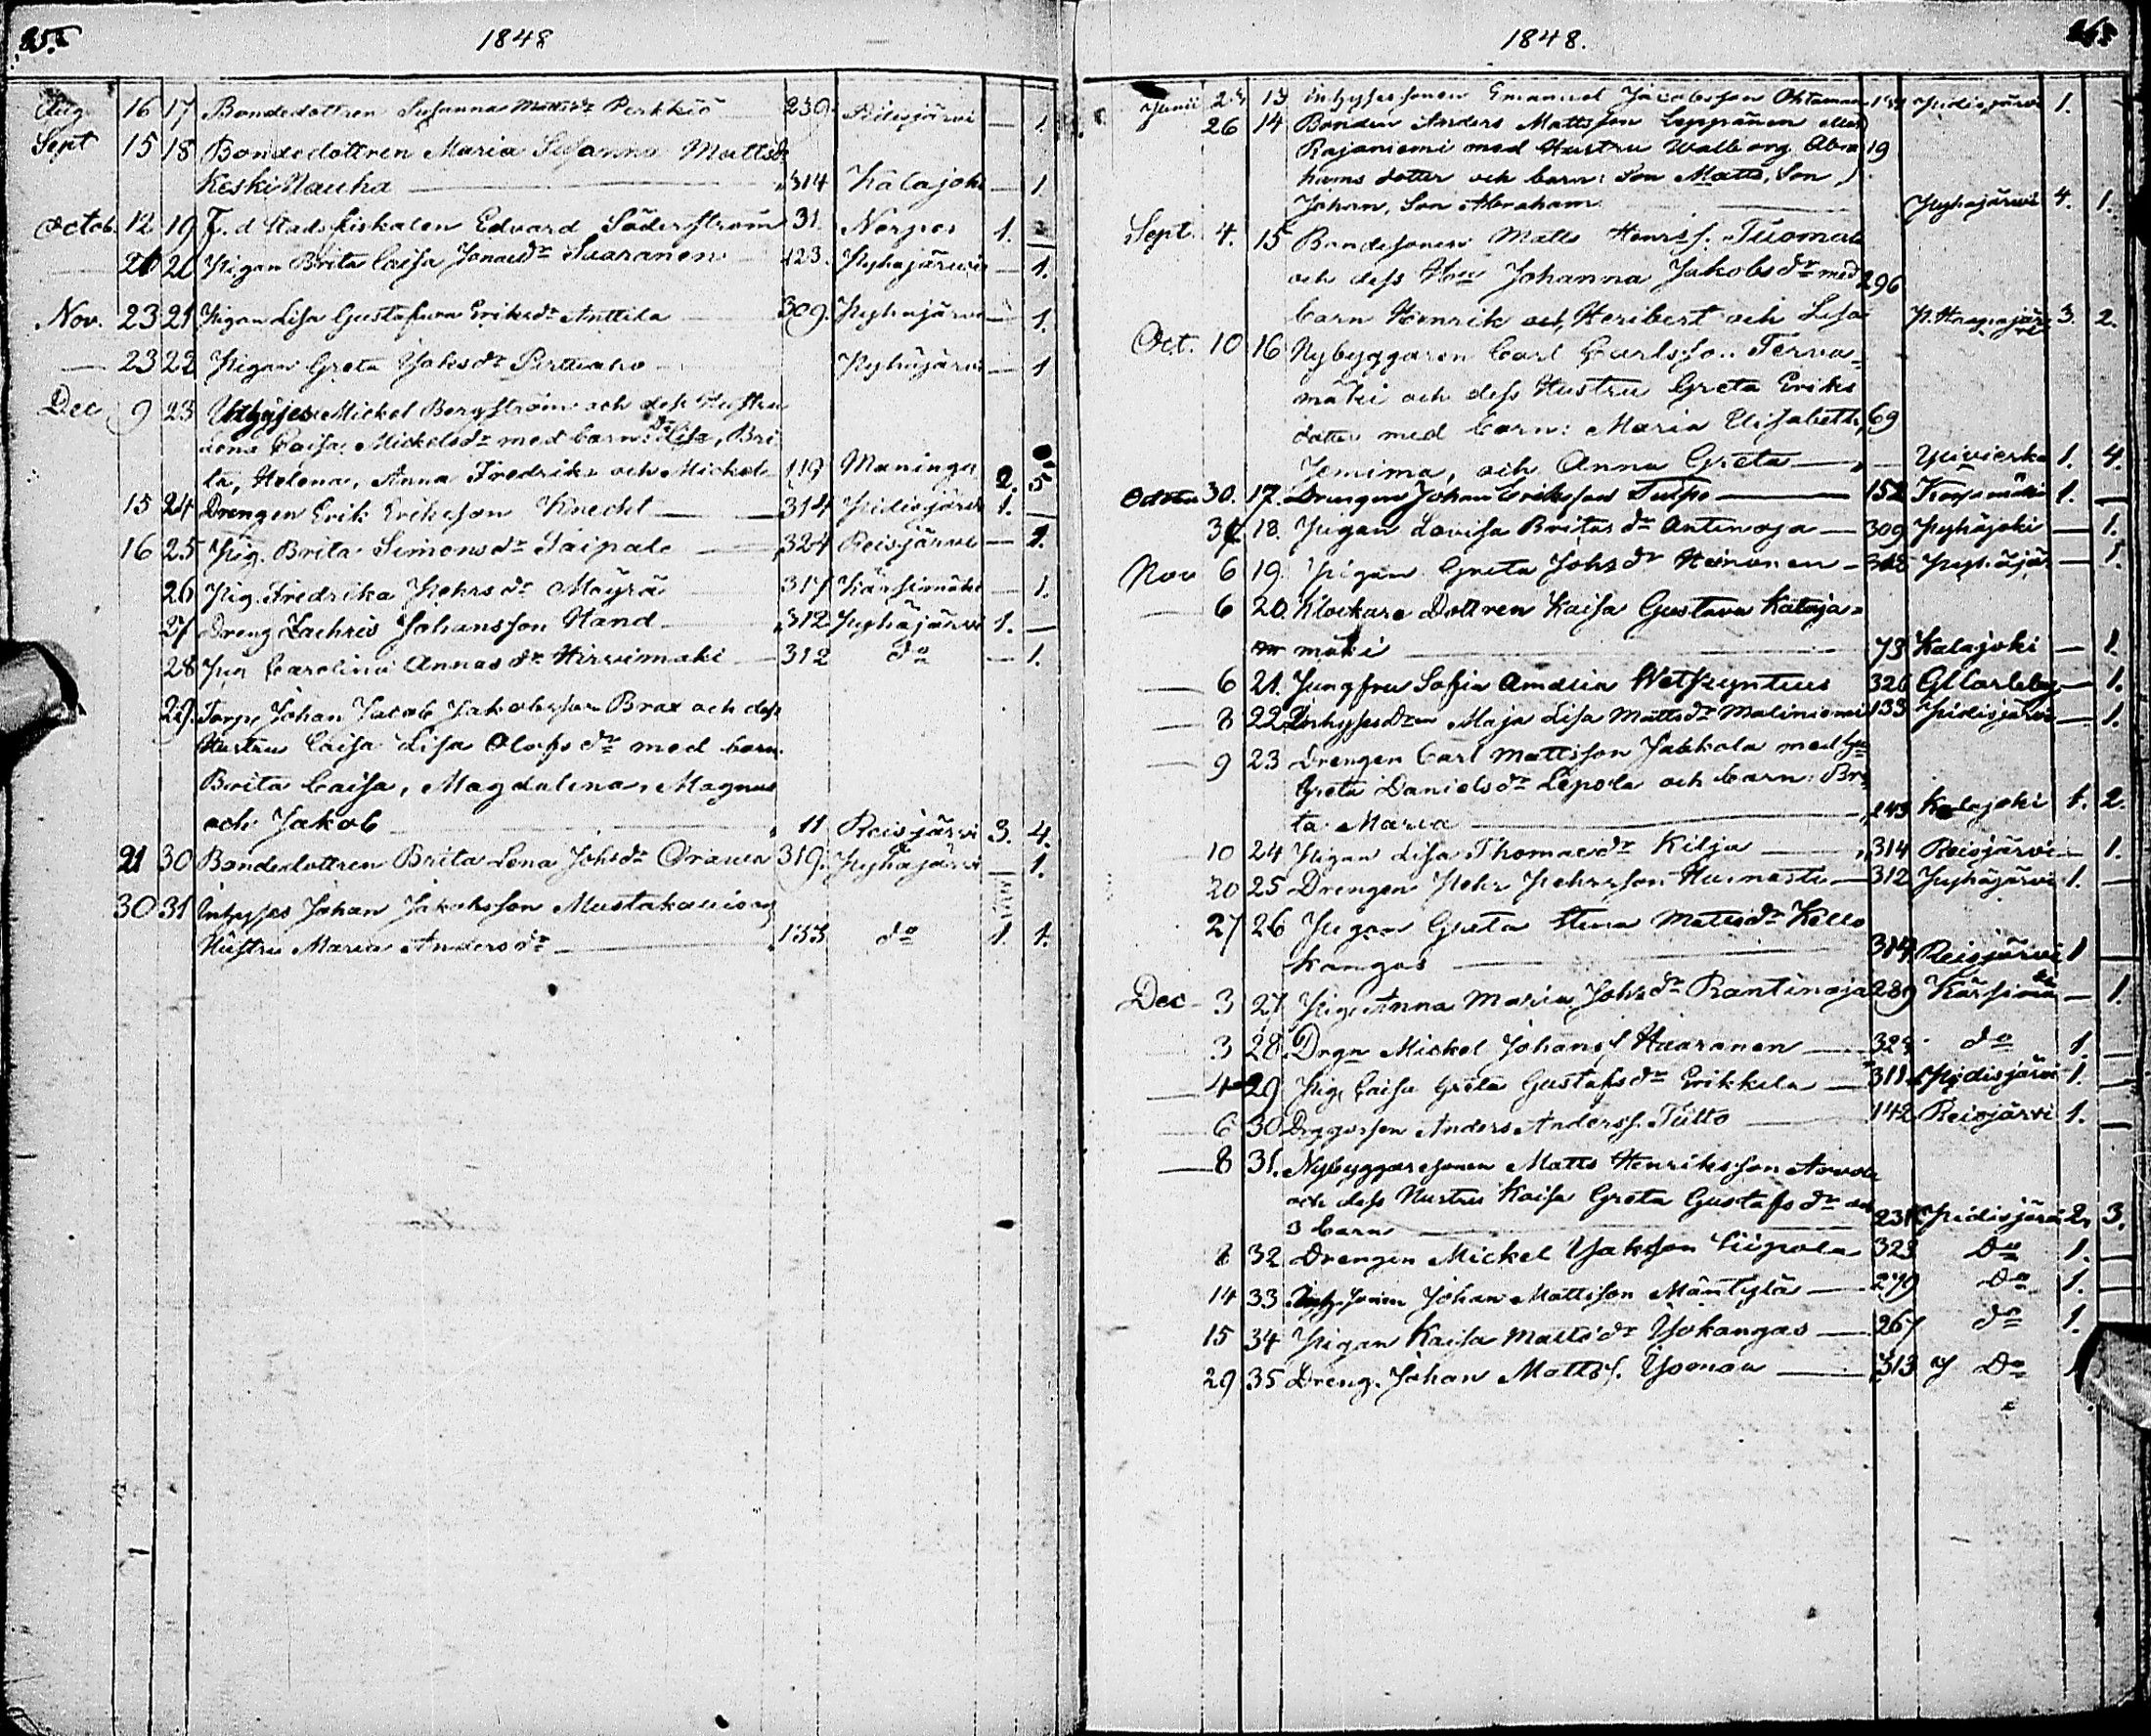 25.
1848
Aug 16 17 Bondedottren Susanna Mattsdr Perkkiö 230. Pidisjärvi — 1.
Sept 15 18 Bondedottren Maria Susanna Mattsdr
Keski Nauha — 314 Kalajoki — 1.
Octob. 12 19 F. d Stadsfiskalen Edvard Söderström 31 Nerpes 1. —
20 Pigan Brita Caisa Jonaedr Suaranen 123. Pyhäjärvi — 1.
Nov. 23 21 Pigan Lisa Gustafava Eriksdr Anttila 309. Pyhäjärvi — 1.
— 23 22 Pigan Greta Johsdr Pyhäjärvi — 1
Dec 9 23 Mickel Bergström och dess Hustru
Caisa Mickelsdr med barn: Lisa, Bri-
ta, Helena, Anna Fredrika och Mickel 119 Maninga 2. 5
15 24 Drengen Erik Eriksson Knecht — 314 Pidisjärvi 1. —
16 25 Pig. Brita Simonsdr Saipale — 324 Reisjärvi — 1.
26 Pig. Fredrika Pehrsdr Mäyrä 317 Kärsämäki — 1.
27 Dreng Zachris Johansson Hand 312 Pyhäjärvi 1. —
28 Pig Carolina Annasdr Hirvimäki — 312 do — 1.
29. Torp. Johan Jacob Jakobsson Brax och dess
Hustru Caisa Lisa Olofsdr med barn
Brita Caisa, Magdalena, Magnus
och Jakob — 11 Reisjärvi 3. 4.
21 30 Bondedottren Brita Lena Johsdr 319. Pyhäjärvi — 1.
30 31 Inhyses Johan Jakobsson
Hustru Maria Andersdr — 133 do 1. 1.
1848.
Junii 13 Inhysessonen Emanuel Jacobsson Pidisjärvi 1.
26 14 Bonden Anders Mattsson Leppänen eller
Rajaniemi med Hustru Walborg Abra- 19
hams dotter och barn: Son Matts, Son
Johan, Son Abraham Pyhäjärvi 4. 1.
Sept. 4. 15 Bondesonen Matts Henrss. Tuomala
och dess Hu Johanna Jakobsdr med 296
barn Henrik och Heribert och Lisa 3. 2.
Oct. 10 16 Nybyggaren Carl Carlsson Terva-
mäki och dess Hustru Greta Eriks
dotter med barn: Maria Elisabeth, 69
Jemima, och Anna Greta — Ylivieska 1. 4.
30. 17. Drengen Johan Eriksson Tulpo — 152 Kärsämäki 1. —
18. Pigan Lovisa Britasdr Antinoja — 309 Pyhäjoki — 1.
Nov 6 19. Pigan Greta Johsdr Heinonen — 302 Pyhäjär — 1.
— 6 20. Klockare Dottren Kaisa Gustava Kataja-
mäki — 73 Kalajoki — 1.
— 6 21. Jungfru Sofia Amalia 326 Gl Carleby — 1.
— 8 22. Maja Lisa Mattsdr Maliniemi 133 Pidisjärvi — 1.
— 9 23 Drengen Carl Mattsson Jakkola med
Greta Danielsdr Lepola och barn: Bri-
ta Maria — 243 Kalajoki 1. 2.
10 24 Pigan Lisa Thomaedr Kilja — 314 Reisjärvi — 1.
20 25 Drengen Pehr Pehrsson — 312 Pyhäjärvi 1. —
27 26 Pigan Greta Stina Mattsdr Kello
kangas — 314 Reisjärvi 1 —
Dec 3 27 Pig. Anna Maria Johsdr Rantinoja 289 Kärsämä — 1.
3 28. Drgn Mickel Johanss. Huaranen — 324 do 1. —
— 4 29 Pig. Caisa Greta Gustafsdr Erikkila — 311 Pidisjärvi 1. —
— 6 30 Anders Anderss. Tutto 142 Reisjärvi 1. —
— 8 31. Nybyggaresonen Matts Henriksson
och dess Hustru Kaisa Greta Gustafsdr och
3 barn — 231 Pidisjärvi 2. 3.
8 32 Drengen Mickel Jakson Liipola 323 Do 1. —
14 33 Johan Mattsson Mäntylä — 279 Do 1. —
15 34 Pigan Kaisa Mattsdr Ylikangas — 267 do 1.
29 35 Dreng. Johan Mattss. — 313 Do